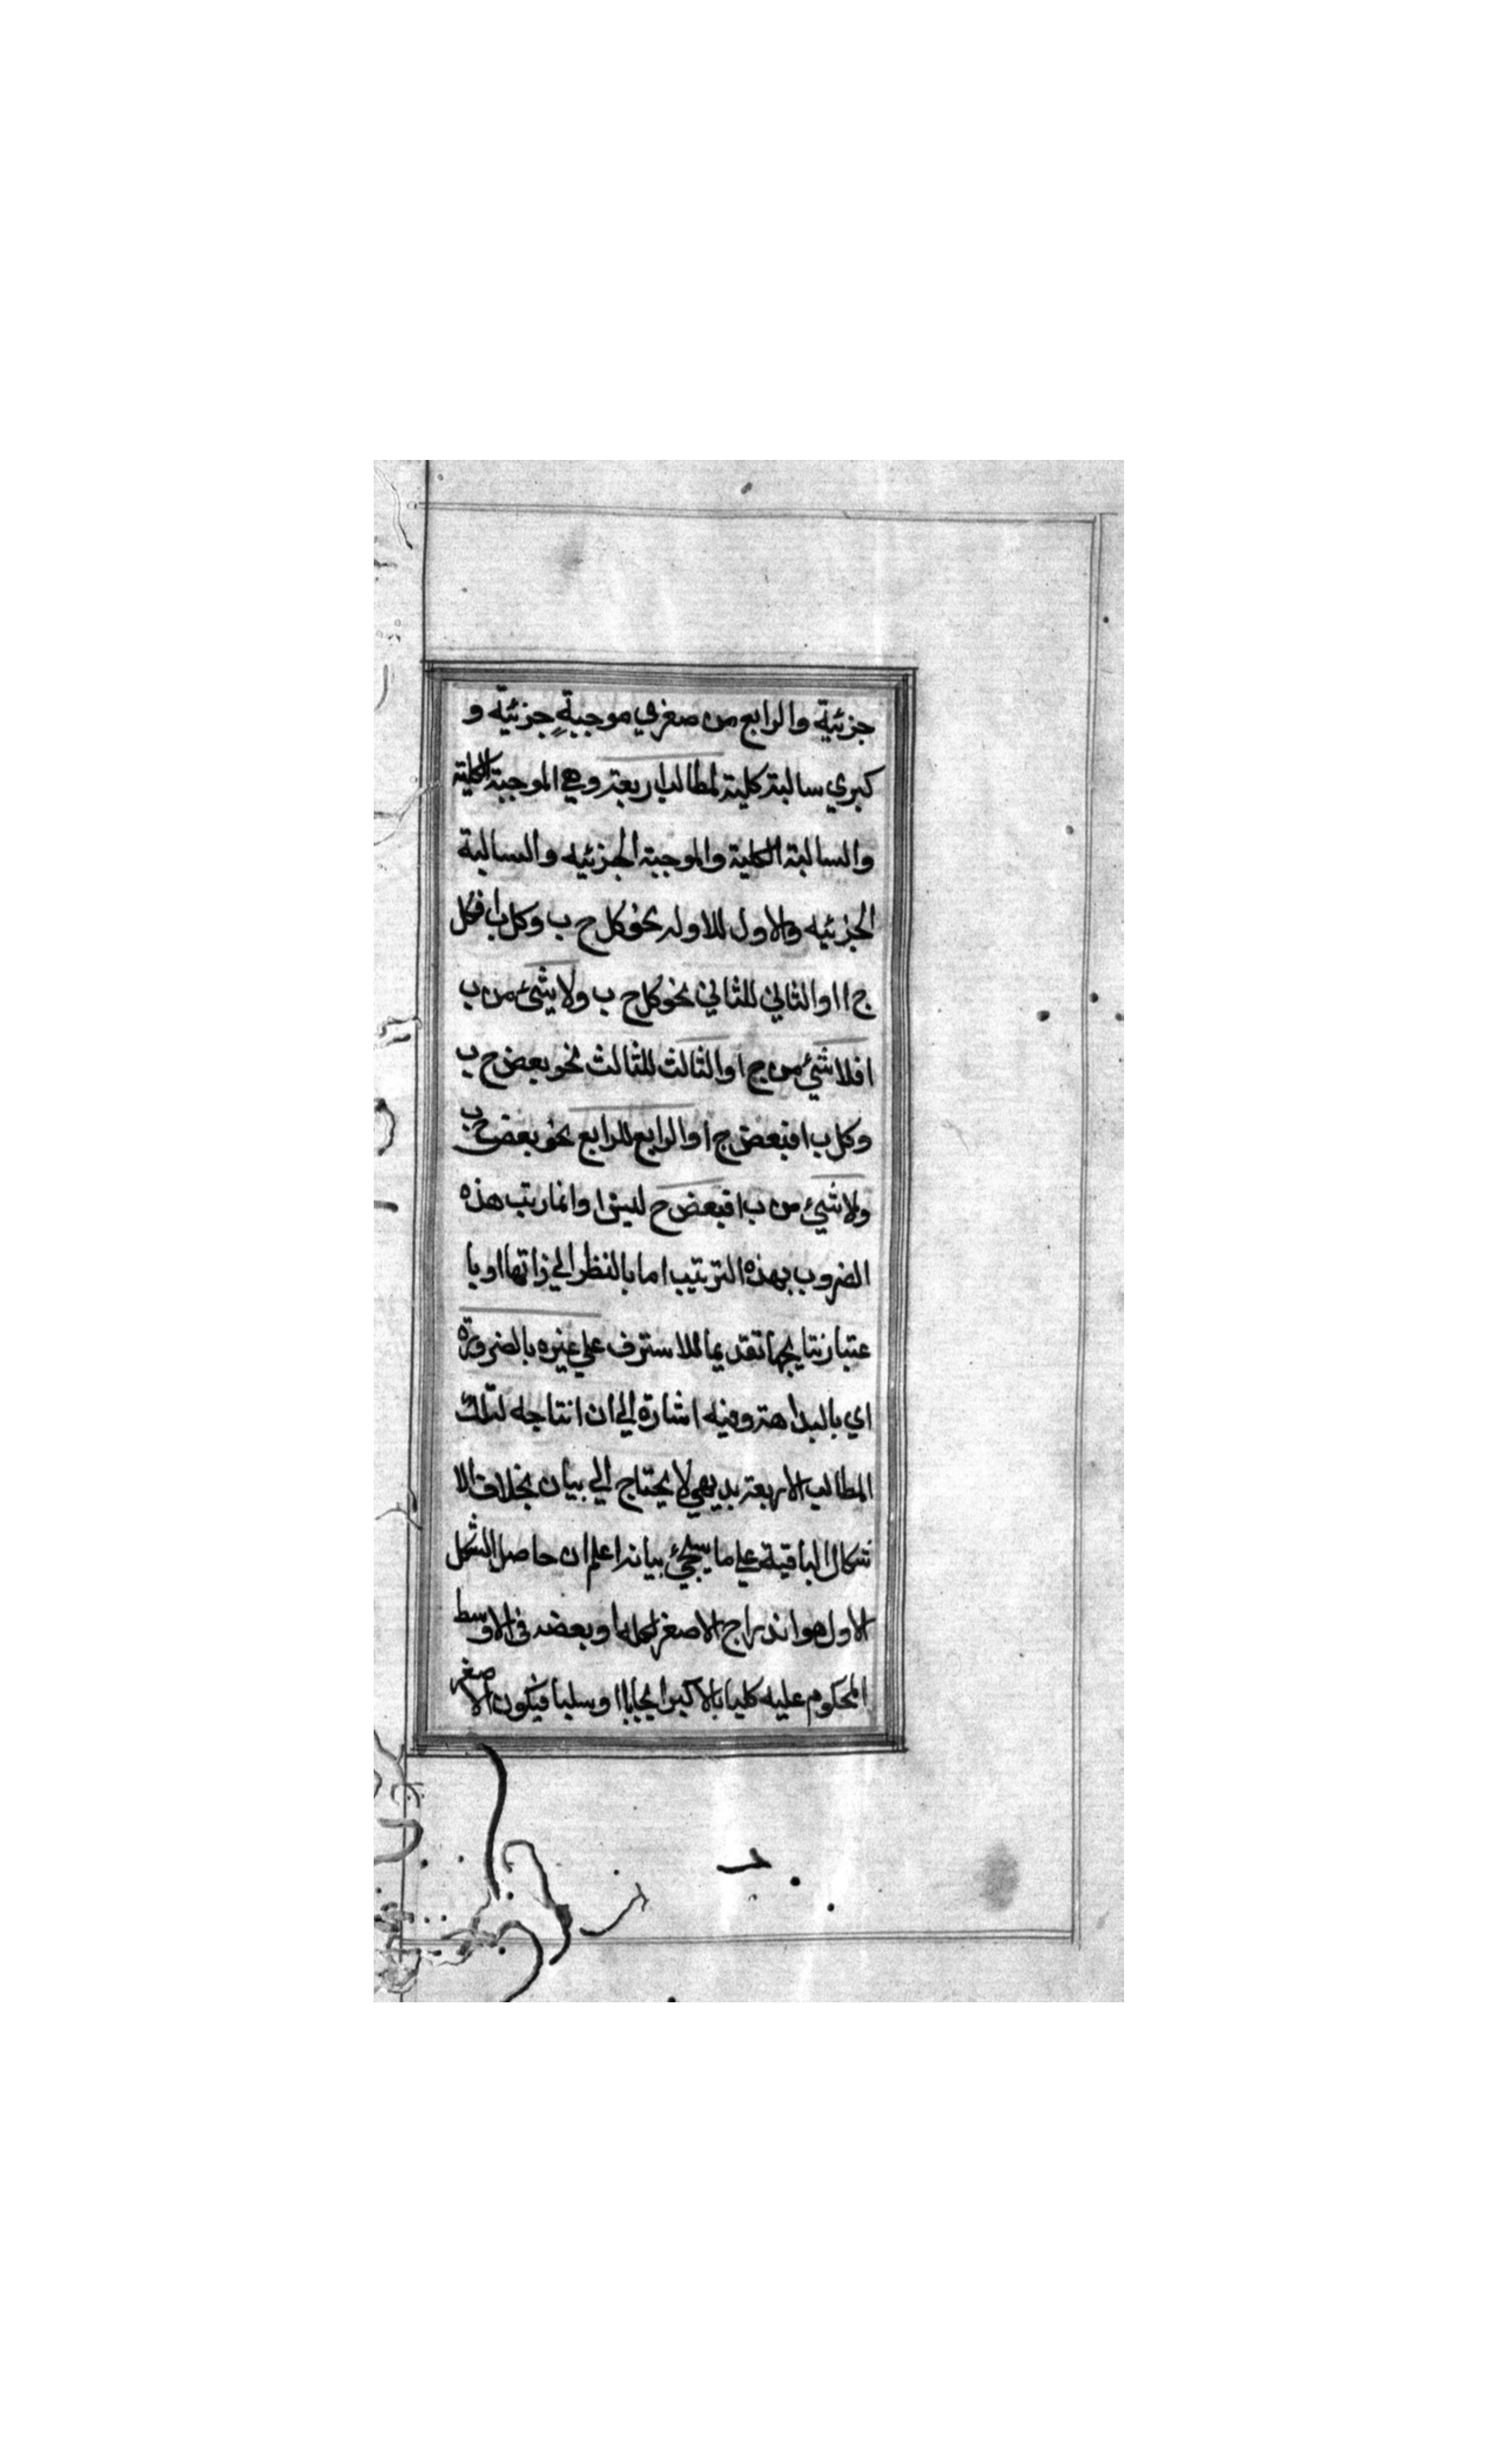 جزئية والرابع من صغري موجبةٍ جزئية و
كبري سالبة كلية لمطالب اربعة وهي الموجبة الكلية
والسالبة الكلية والموجبة الجزئيه والسالبة
الجزئيه والاول للاوله نحو كل ج ب وكل ب ا فكل
ج ا اوالثاني للثاني نحو كل ج ب ولا شئ من ب
ا فلا شئ من ج ا والثالث للثالث نحو بعض ج ب
وكل ب ا فبعض ج ا والرابع للرابع نحو بعض ج ب
ولا شيئ من ب ا فبعض ج ليس ا وانما رتب هذه
الضروب بهذه الترتيب اما بالنظر الي ذاتها او با
عتبار نتايجها تقديما للاسترف علي غيره بالضرورة
اي بالبداهة وفيه اشارة الي ان انتاجه لتلك
المطالب الاربعة بديهي لا يحتاج الي بيان بخلاف الا
شكال الباقية علي ما يسجئ بيانه اعلم ان حاصل الشكل
الاول هو اندراج الاصغر او بعضه في الاوسط
المحكوم عليه كليا بالاكبر ايجابا او سلبا فيكون الاصغر